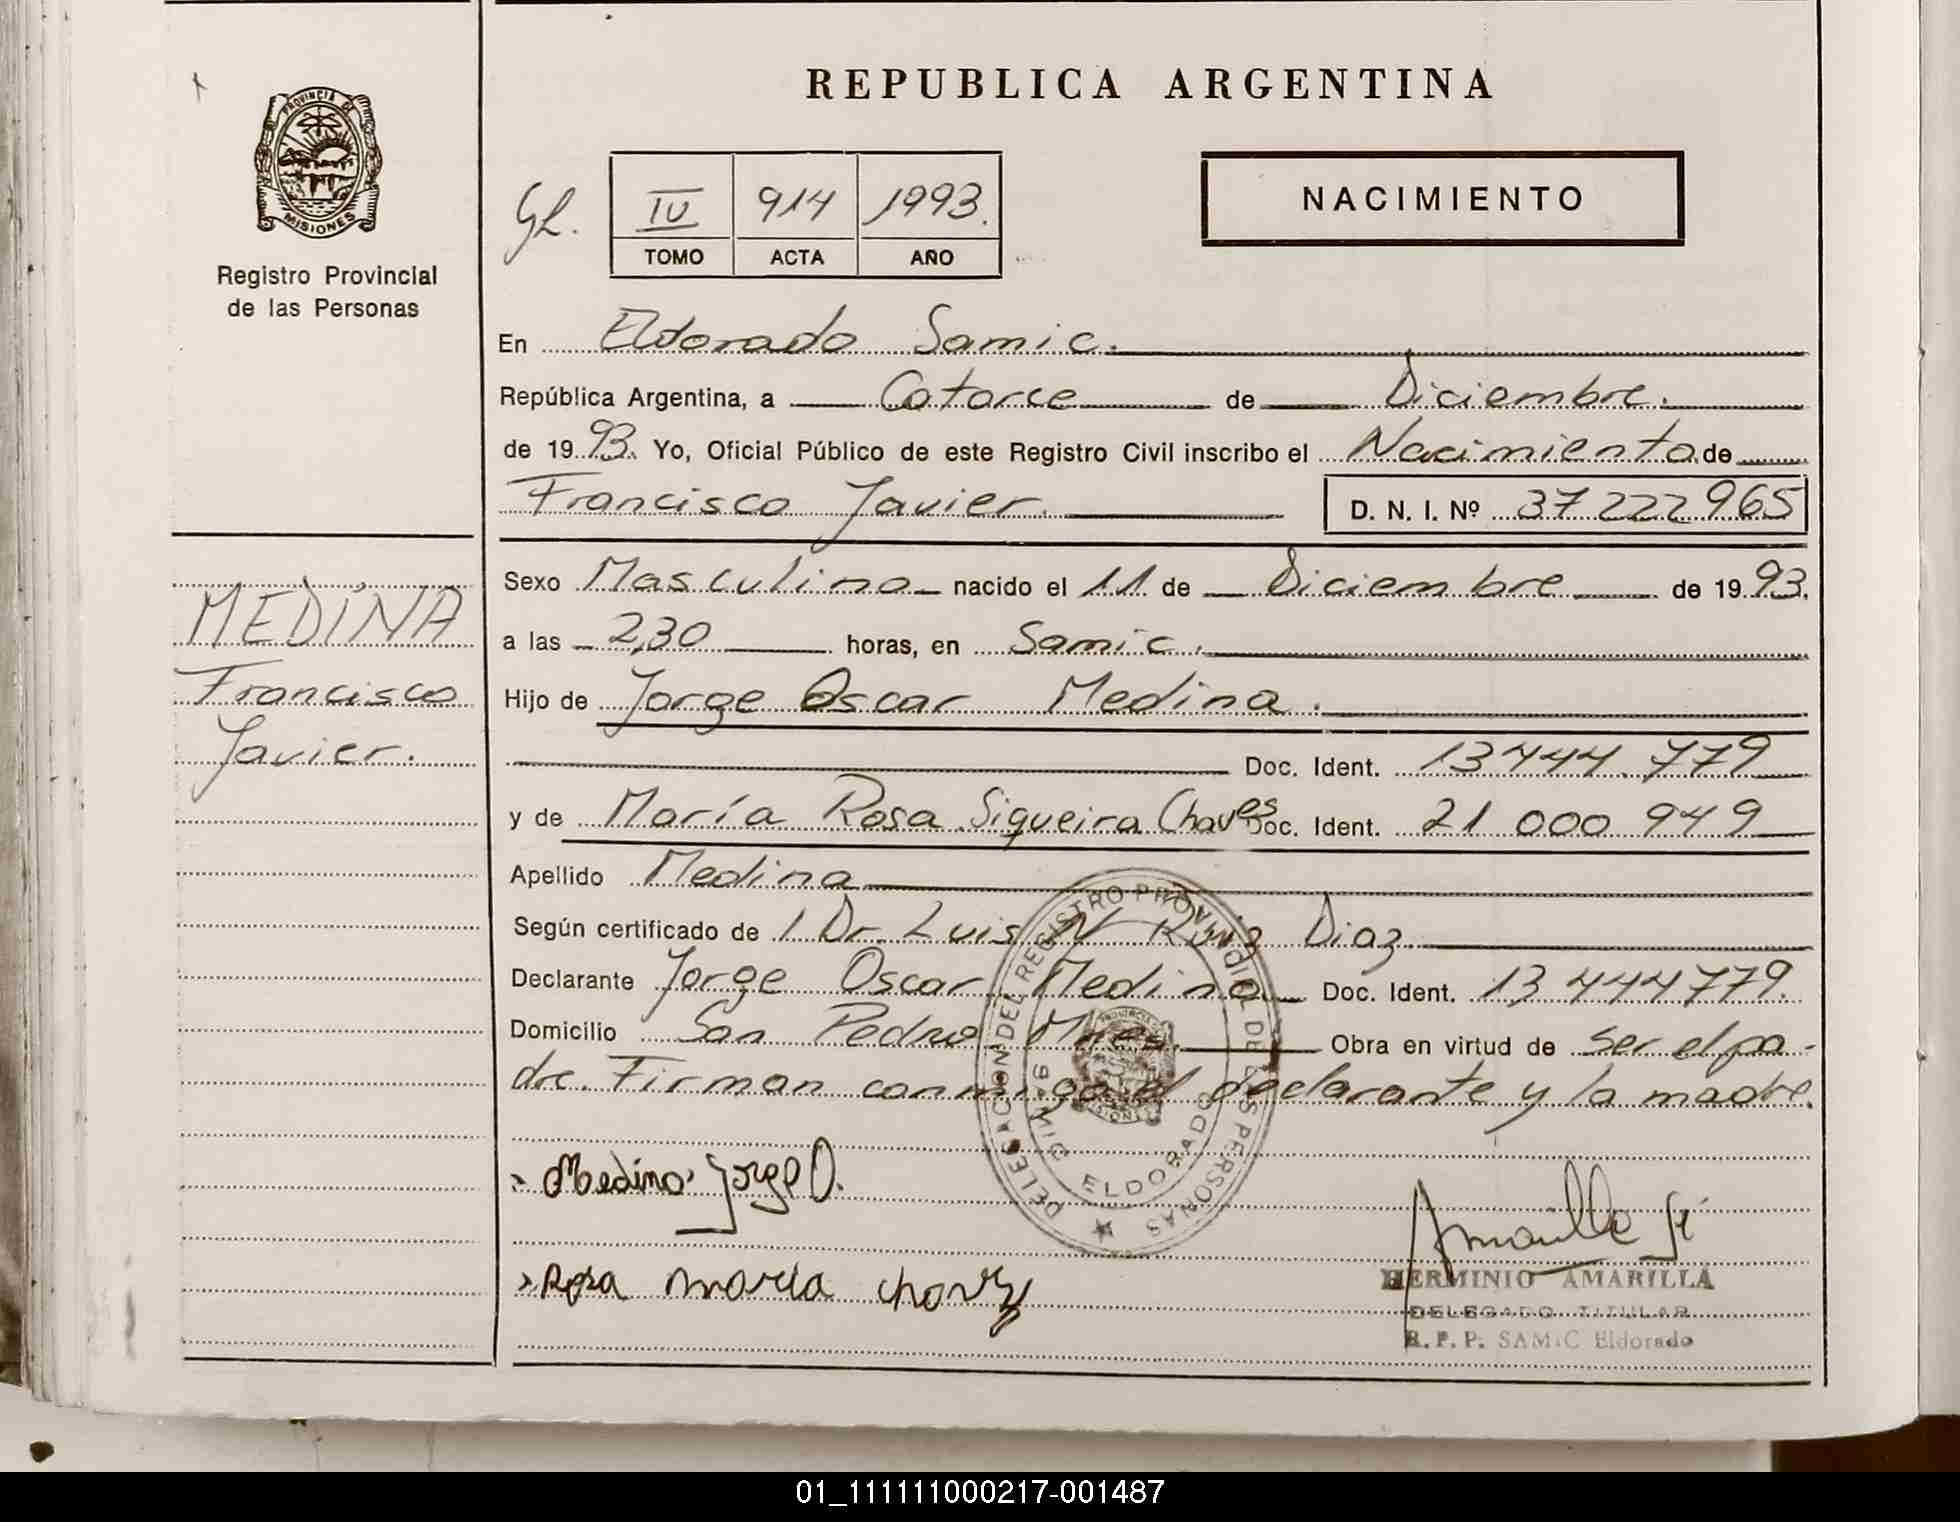 REPUBLICA ARGENTINA
PROVINCIA DE
MISIONES
Registro Provincial
de las Personas
NACIMIENTO
GL.
IV 914 1993.
TOMO ACTA AÑO
En Eldorado Samic.
República Argentina, a Catorce de Diciembre.
de 1993. Yo, Oficial Público de este Registro Civil inscribo el Nacimiento de
Francisco Javier. D. N. I. Nº 37 222 965
MEDINA
Francisco
Javier.
Sexo Masculino nacido el 11 de Diciembre de 1993.
a las 2,30 horas, en Samic.
Hijo de Jorge Oscar Medina.
Doc. Ident. 13 444 779
y de María Rosa Siqueira Chaves Doc. Ident. 21 000 949
Apellido Medina
Según certificado de 1 Dr. Luis N Ruiz Diaz
Declarante Jorge Oscar Medina Doc. Ident. 13 444 779.
Domicilio San Pedro Mnes. Obra en virtud de ser el pa-
dre. Firman conmigo el declarante y la madre.
DELEGACION DEL REGISTRO PROVINCIAL DE LAS PERSONAS
ELDORADO
Medina Jorge O.
Rosa maria chavez
Amarilla
HERMINIO AMARILLA
DELEGADO TITULAR
R. P. P. SAMIC Eldorado
01_111111000217-001487